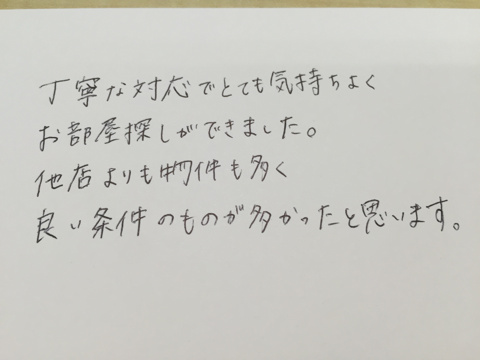 丁寧な対応でとても気持ちよく
お部屋探しができました。
他店よりも物件も多く
良い条件のものが多かったと思います。